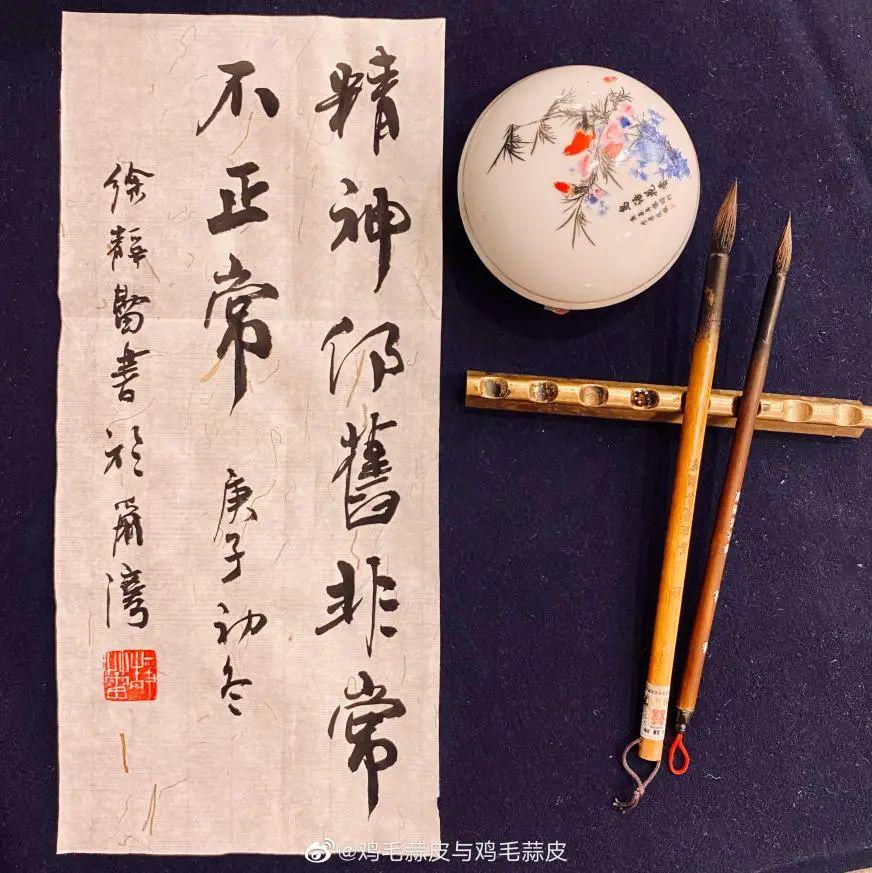 精神仍舊非常
不正常 庚子初冬
徐靜蕾書於爾灣
@鸡毛蒜皮与鸡毛蒜皮